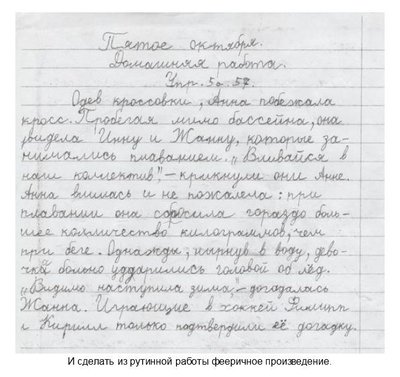 Пятое октября.
Домашняя работа.
Упр. 5а. 57.
Одев кроссовки, Анна побежала
кросс. Пробегая мимо бассейна, она
увидела Инну и Жанну, которые за-
нимались плаванием. „Вливайся в
наш коллектив", – крикнули они Анне.
Анна влилась и не пожалела: при
плавании она сбросила гораздо боль-
шее колличество килограммов, чем
при беге. Однажды, нырнув в воду, дево-
чки больно ударились головой об лёд.
„Видимо наступила зима", – догадалась
Жанна. Играющие в хоккей Филипп
и Кирилл только подтвердили её догадку.
И сделать из рутинной работы фееричное произведение.